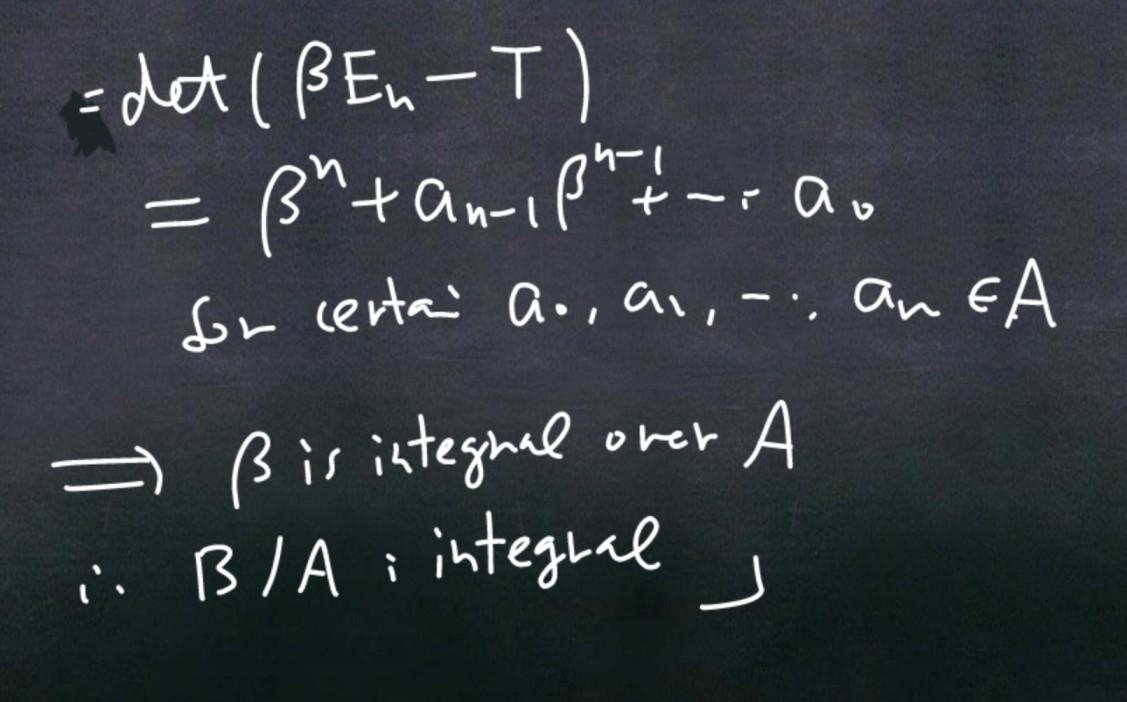 = det ( βEₙ − T )
= βⁿ + aₙ₋₁βⁿ⁻¹ + ⋯ a₀
for certai a₀, a₁, ⋯, aₙ ∈ A
⟹ β is integral over A
∴ B/A ; integral ⌟